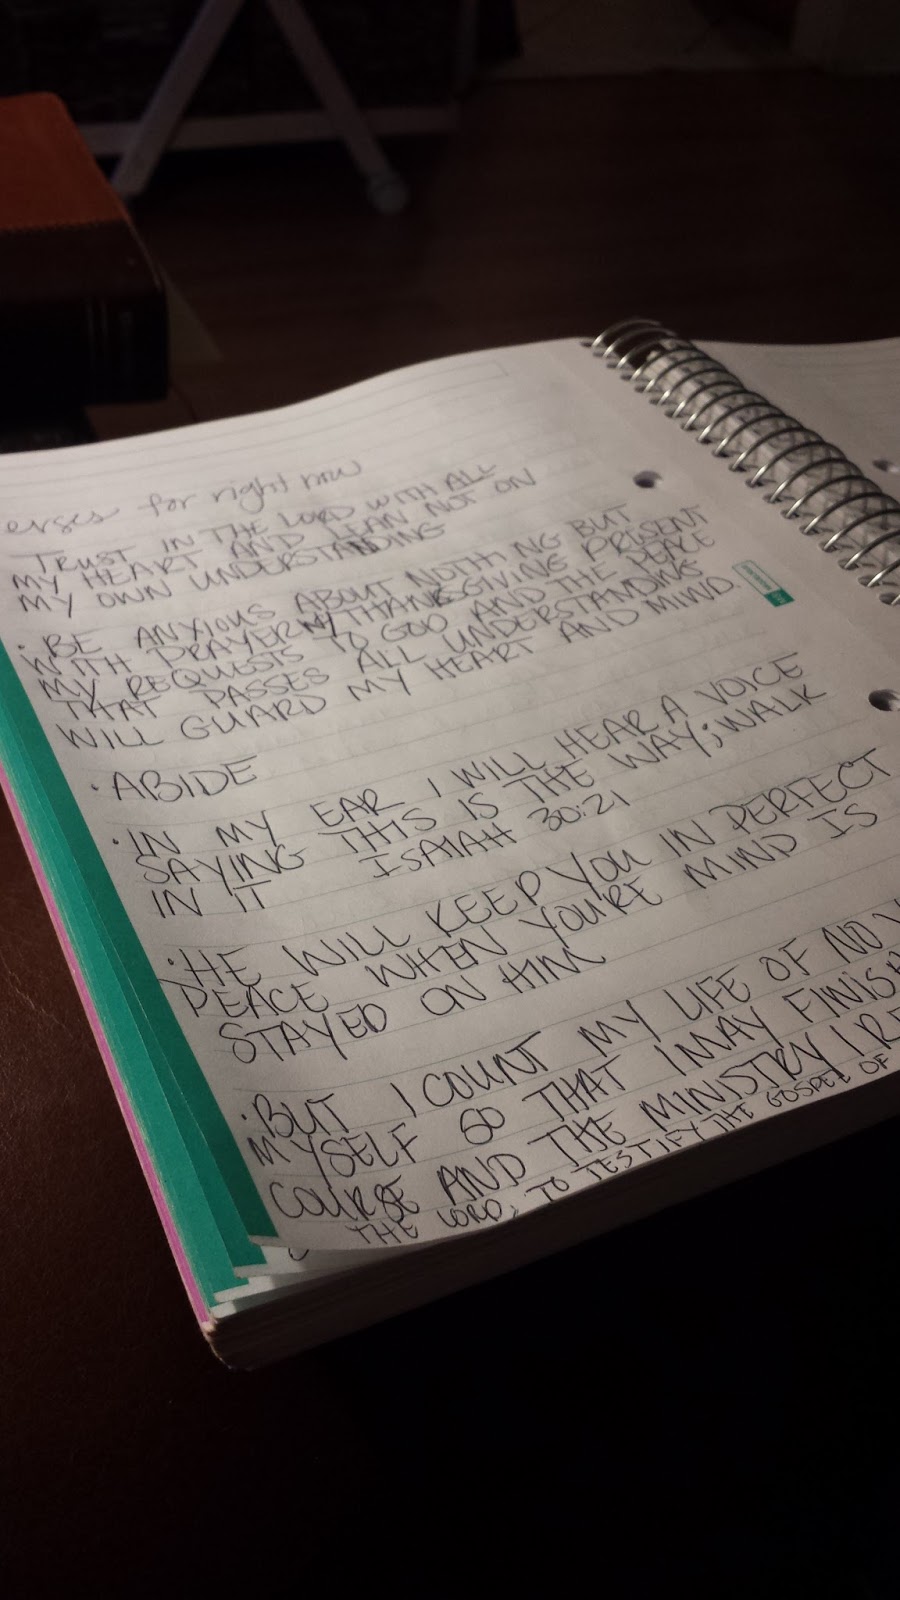 erses for right now
TRUST IN THE LORD WITH ALL
MY HEART AND LEAN NOT ON
MY OWN UNDERSTANDING
· BE ANXIOUS ABOUT NOTHING BUT
WITH PRAYER W/ THANKSGIVING PRESENT
MY REQUESTS TO GOD AND THE PEACE
THAT PASSES ALL UNDERSTANDING
WILL GUARD MY HEART AND MIND.
· ABIDE
· IN MY EAR I WILL HEAR A VOICE
SAYING THIS IS THE WAY; WALK
IN IT ISAIAH 30:21
· HE WILL KEEP YOU IN PERFECT
PEACE WHEN YOU'RE MIND IS
STAYED ON HIM
· BUT I COUNT MY LIFE OF NO
MYSELF SO THAT I MAY FINISH
COURSE AND THE MINISTRY I RE
THE LORD, TO TESTIFY THE GOSPEL OF